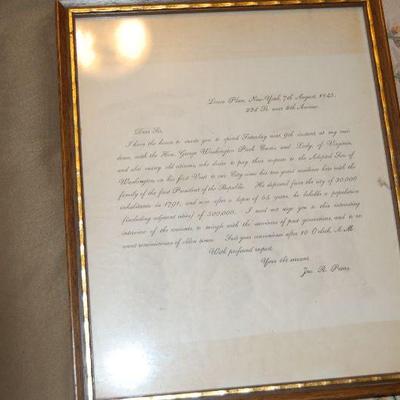 New-York, 7th August, 1845.
22d St. near 6th Avenue.
Dear Sir,
I have the honor to invite you to spend Saturday next 9th instant at my
down, with the Hon. George Washington Park Custis and Lady, of Virginia,
and also many old citizens, who desire to pay their respects to the Adopted Son of
Washington, on his first Visit to our City since his two years' residence here with the
family of the first President of the Republic. He departed from the city of 30,000
inhabitants in 1791, and now after a lapse of 54 years, he beholds a population
(including adjacent cities) of 500,000. I need not urge you to this interesting
interview of the ancients, to mingle with the survivors of past generations, and to
reminiscences of olden times. Suit your convenience after 10 O'clock, A. M.
With profound respect,
Your
Jno. R. Peters